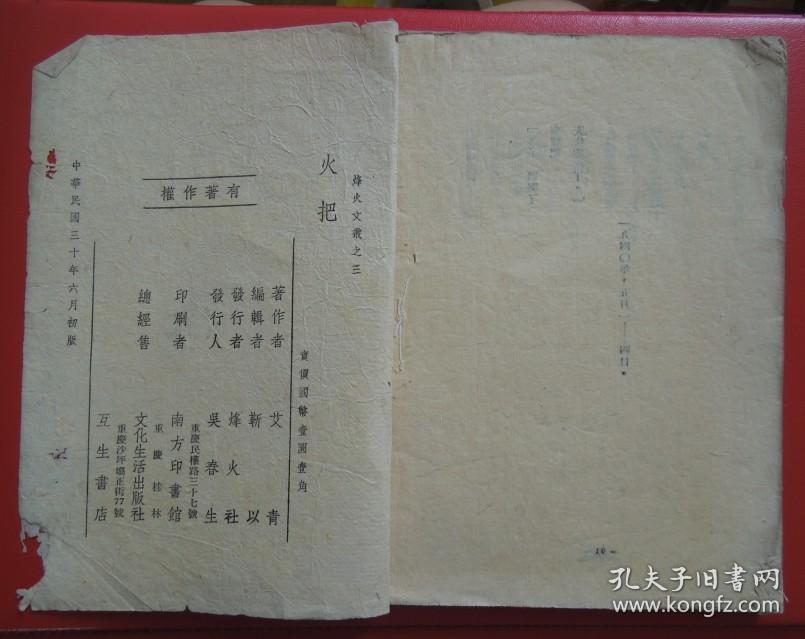 烽火文叢之三
火把
實價國幣壹圓壹角
有著作權
著作者 艾青
編輯者 靳以
發行者 烽火社
發行人 吳春生
重慶民權路三十七號
印刷者 南方印書館
重慶 桂林
總經售 文化生活出版社
重慶沙坪壩正街77號
互生書店
中華民國三十年六月初版
一九四〇年,五月一——四日。
孔夫子旧书网
www.kongfz.com